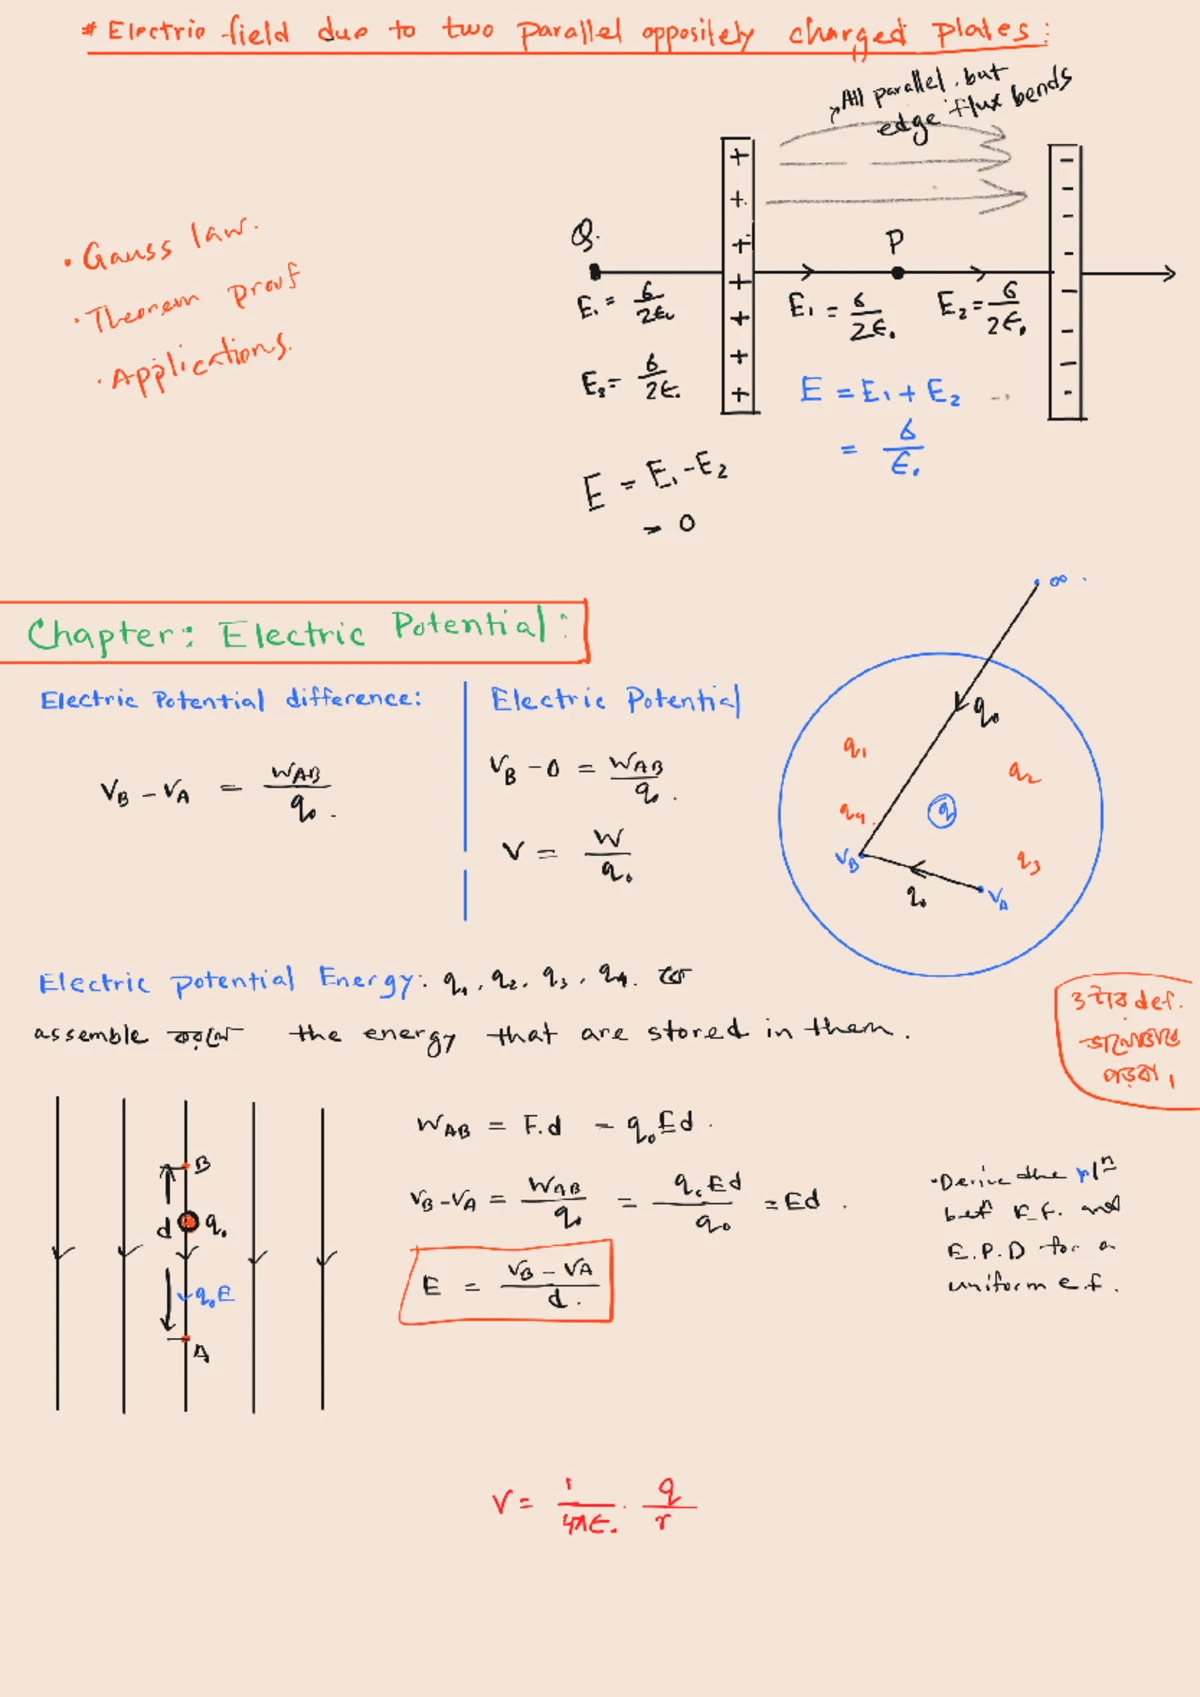 # Electric field due to two parallel oppositely charged plates:
All parallel, but
edge flux bends
• Gauss law.
• Theorem proof
• Applications.
Q.
P
E₁ = σ/2ε₀
E₂ = σ/2ε₀
E = E₁ - E₂
= 0
E₁ = σ/2ε₀
E₂ = σ/2ε₀
E = E₁ + E₂
= σ/ε₀
Chapter: Electric Potential:
Electric Potential difference:
V_B - V_A = W_AB/q₀.
Electric Potential
V_B - 0 = W_AB/q₀.
V = W/q₀
∞
q₀
q₁
q₂
q₄
q
q₃
V_B
q₀
V_A
Electric potential Energy: q₁, q₂, q₃, q₄. কে
assemble করলে the energy that are stored in them.
৩ টার def.
ভালোভাবে
পড়বা।
B
d q₀
q₀E
A
W_AB = F.d = q₀Ed.
V_B - V_A = W_AB/q₀ = q₀Ed/q₀ = Ed.
E = V_B - V_A/d.
• Derive the r/n
bet E.F. and
E.P.D for a
uniform e.f.
V = 1/4πε₀ . q/r